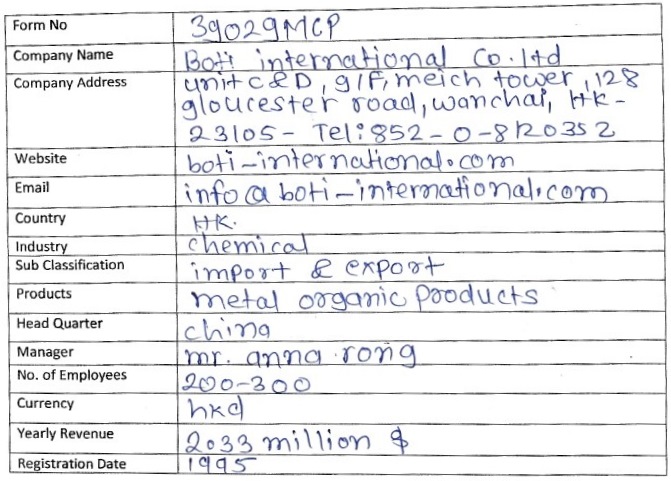 Form No 39029MCP
Company Name Boti international Co. ltd
Company Address unit c&D, 9/F, meich tower, 128
gloucester road, wanchai, HK-
23105- Tel: 852-0-8120352
Website boti-international.com
Email info@boti-international.com
Country HK.
Industry chemical
Sub Classification import & export
Products metal organic products
Head Quarter china
Manager mr. anna rong
No. of Employees 200-300
Currency hkd
Yearly Revenue 2.33 million $
Registration Date 1995